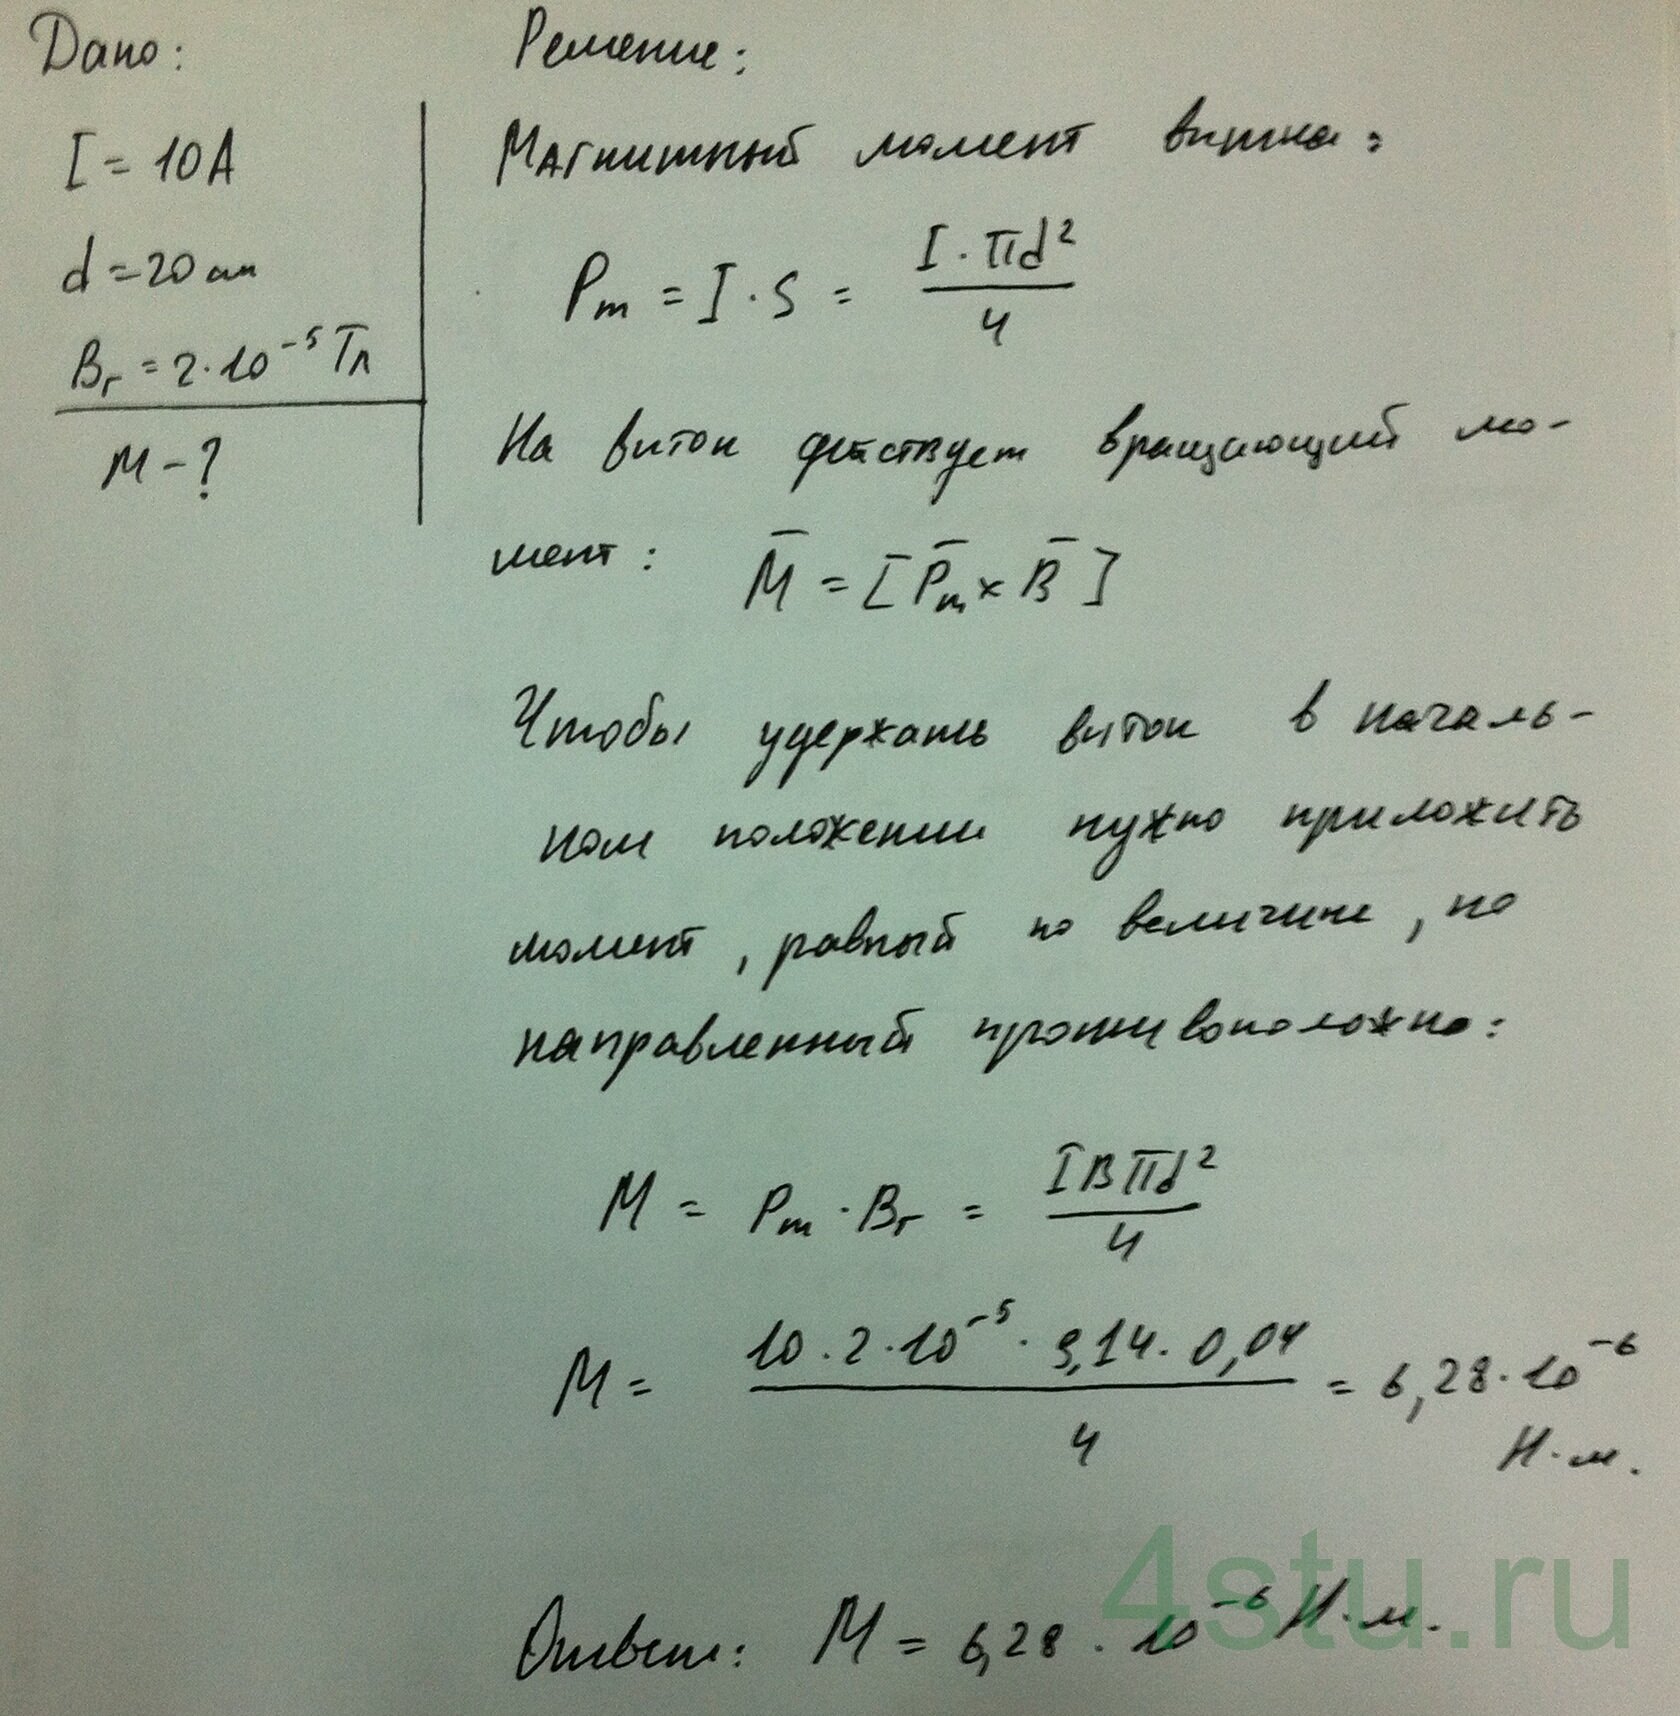 Дано:
I = 10А
d = 20 см
Bг = 2·10⁻⁵ Тл
М - ?
Решение:
Магнитный момент витка:
Pm = I · S = I · πd² / 4
На виток действует вращающий мо-
мент: M̅ = [P̅m × B̅]
Чтобы удержать виток в началь-
ном положении нужно приложить
момент, равный по величине, но
направленный противоположно:
M = Pm · Bг = IBπd² / 4
M = 10 · 2 · 10⁻⁵ · 3,14 · 0,04 / 4 = 6,28 · 10⁻⁶
Н·м.
Ответ: M = 6,28 · 10⁻⁶ Н·м.
4stu.ru